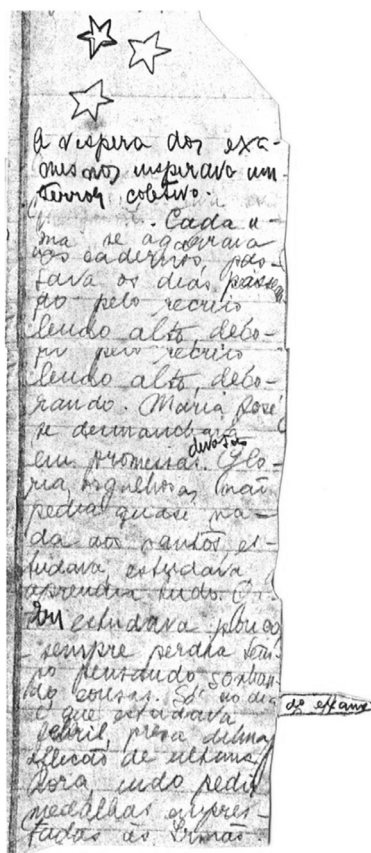 A vespera dos exa-
mes nos inspirava um
terror coletivo.
. Cada u-
ma se agarrava
aos cadernos, pas-
sava os dias passean
do pelo recreio
lendo alto, debo-
pelo recreio
lendo alto, debo-
rando. Maria José
se desmanchava
em promessas. devotada Glo-
ria, orgulhosa, não
pedia quase na-
da aos santos, es-
tudava, estudava e
aprendia tudo.
Eu estudava pouco,
sempre perdia tem-
po pensando, sonhan-
do cousas. Só no dia
do exame
é que estudava
febril, presa duma
aflicão de ultima
hora, indo pedir
medalhas empres-
tadas às Irmãs.